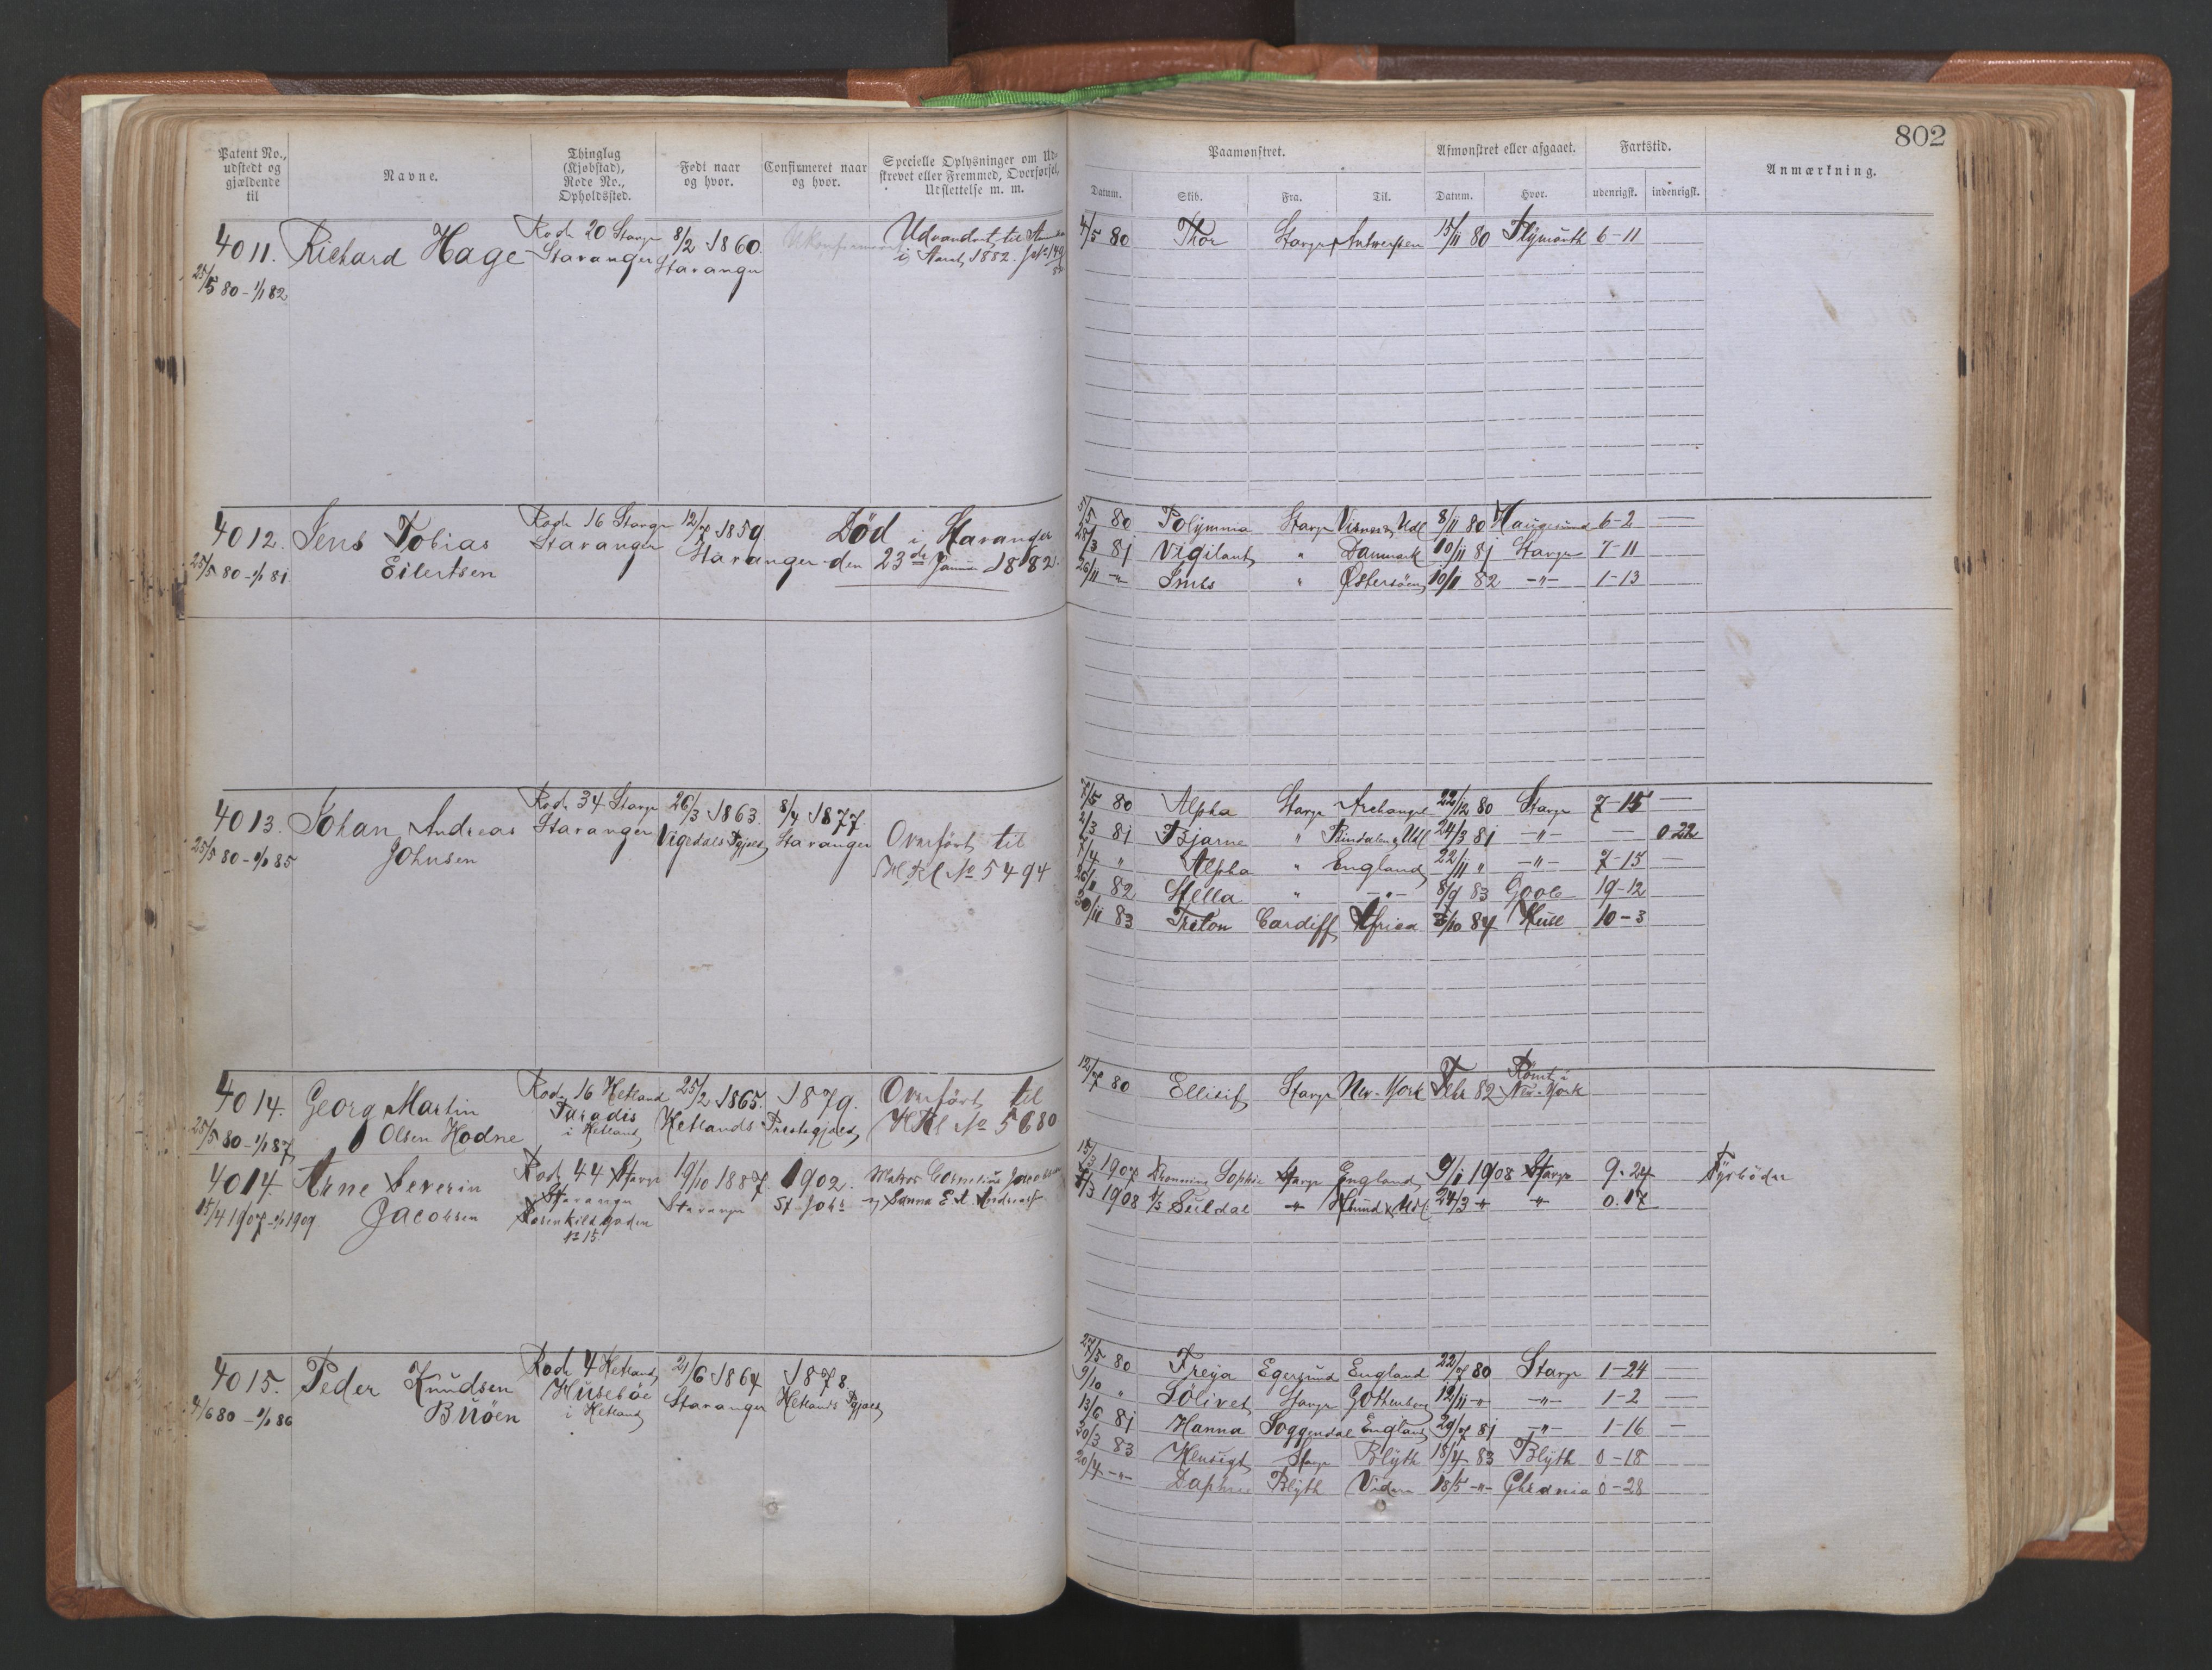 802
Patent No., udstedt og gjældende til
Navne.
Thinglag (Kjøbstad), Rode No., Opholdssted.
Født naar og hvor.
Confirmeret naar og hvor.
Specielle Oplysninger om Udstrevet eller Fremmed, Overførsel, Udslettelse m. m.
Paamønstret.
Afmønstret eller afgaaet.
Fartstid.
Anmærkning.
Datum.
Skib.
Fra.
Til.
Datum.
Hvor.
udenrigst.
indenrigst.
4011. Richard Hage Rode 20 Stavgr 8/2 1860. Udvandret til
25/5 80 - 1/1 82 Stavanger Stavanger i Marts 1882.
4/5 80 Thor Stavgr Antwerpen 15/11 80 Plymouth 6-11
4012. Jens Tobias Rode 16 Stavgr 12/7 1859 Død i Stavanger
25/5 80 - 1/1 81 Eilertsen Stavanger Stavanger den 23de Januar 1882.
5/5 80 Polymnia Stavgr Visnes & Udl 8/11 80 Haugesund 6-2 —
25/3 81 Vigilant " Danmark 10/11 81 Stavgr 7-11 —
26/11 -"- " Østersøen 10/11 82 -"- 1-13
4013. Johan Andreas Rode 34 Stavgr 26/3 1863. 8/4 1877. Overført til
25/5 80 - 1/1 85 Johnsen Stavanger Vigedals Pgjeld Stavanger HRl No 5494
7/5 80 Alpha Stavgr Archangel 22/12 80 Stavgr 7-15 —
2/3 81 Bjarne " & Udl 24/3 81 -"- — 0 22
7/4 " Alpha " England 22/11 " -"- 7-15 —
26/11 82 Stella " -"- 8/9 83 Goole 19-12
30/11 83 Triton Cardiff Africa /10 84 Hull 10-3
4014. Georg Martin Rode 16 Hetland 25/2 1865. 1879. Overført til
25/5 80 - 1/1 87 Olsen Hodne Paradis i Hetland Hetlands Prestegjæld HRl No 5680
12/7 80 Ellisif Stavgr New-York Febr 82 Rømt i New-York
4014. Arne Severin Rode 44 Stavgr 19/10 1887. 1902. Matros Cornelius Jacobsen
15/4 1907 - 1/1 1909 Jacobsen Stavanger Rosenkildgaden No 15. Stavanger St. Johs
15/3 1907 Dronning Sophie Stavgr England 9/1 1908 Stavgr 9. 24 Fyrbøder
/3 1908 D/S Suldal -"- & Udl. 24/3 -"- " 0. 17
4015. Peder Knudsen Rode 4 Hetland 21/6 1864 1878.
4/6 80 - 1/1 86 Buøen Husebøe i Hetland Stavanger Hetlands Pgjæld
27/5 80 Freya Egersund England 22/7 80 Stavgr 1-24 —
9/10 " Sølivet Stavgr Gothenborg 12/11 -"- -"- 1-2 —
13/6 81 Hanna Soggendal England 29/7 81 -"- 1-16 —
20/3 83 Hensigt Stavgr Blyth 18/4 83 Blyth 0-18
20/4 -"- Daphne Blyth Viden 18/5 -"- Chrania 0-28